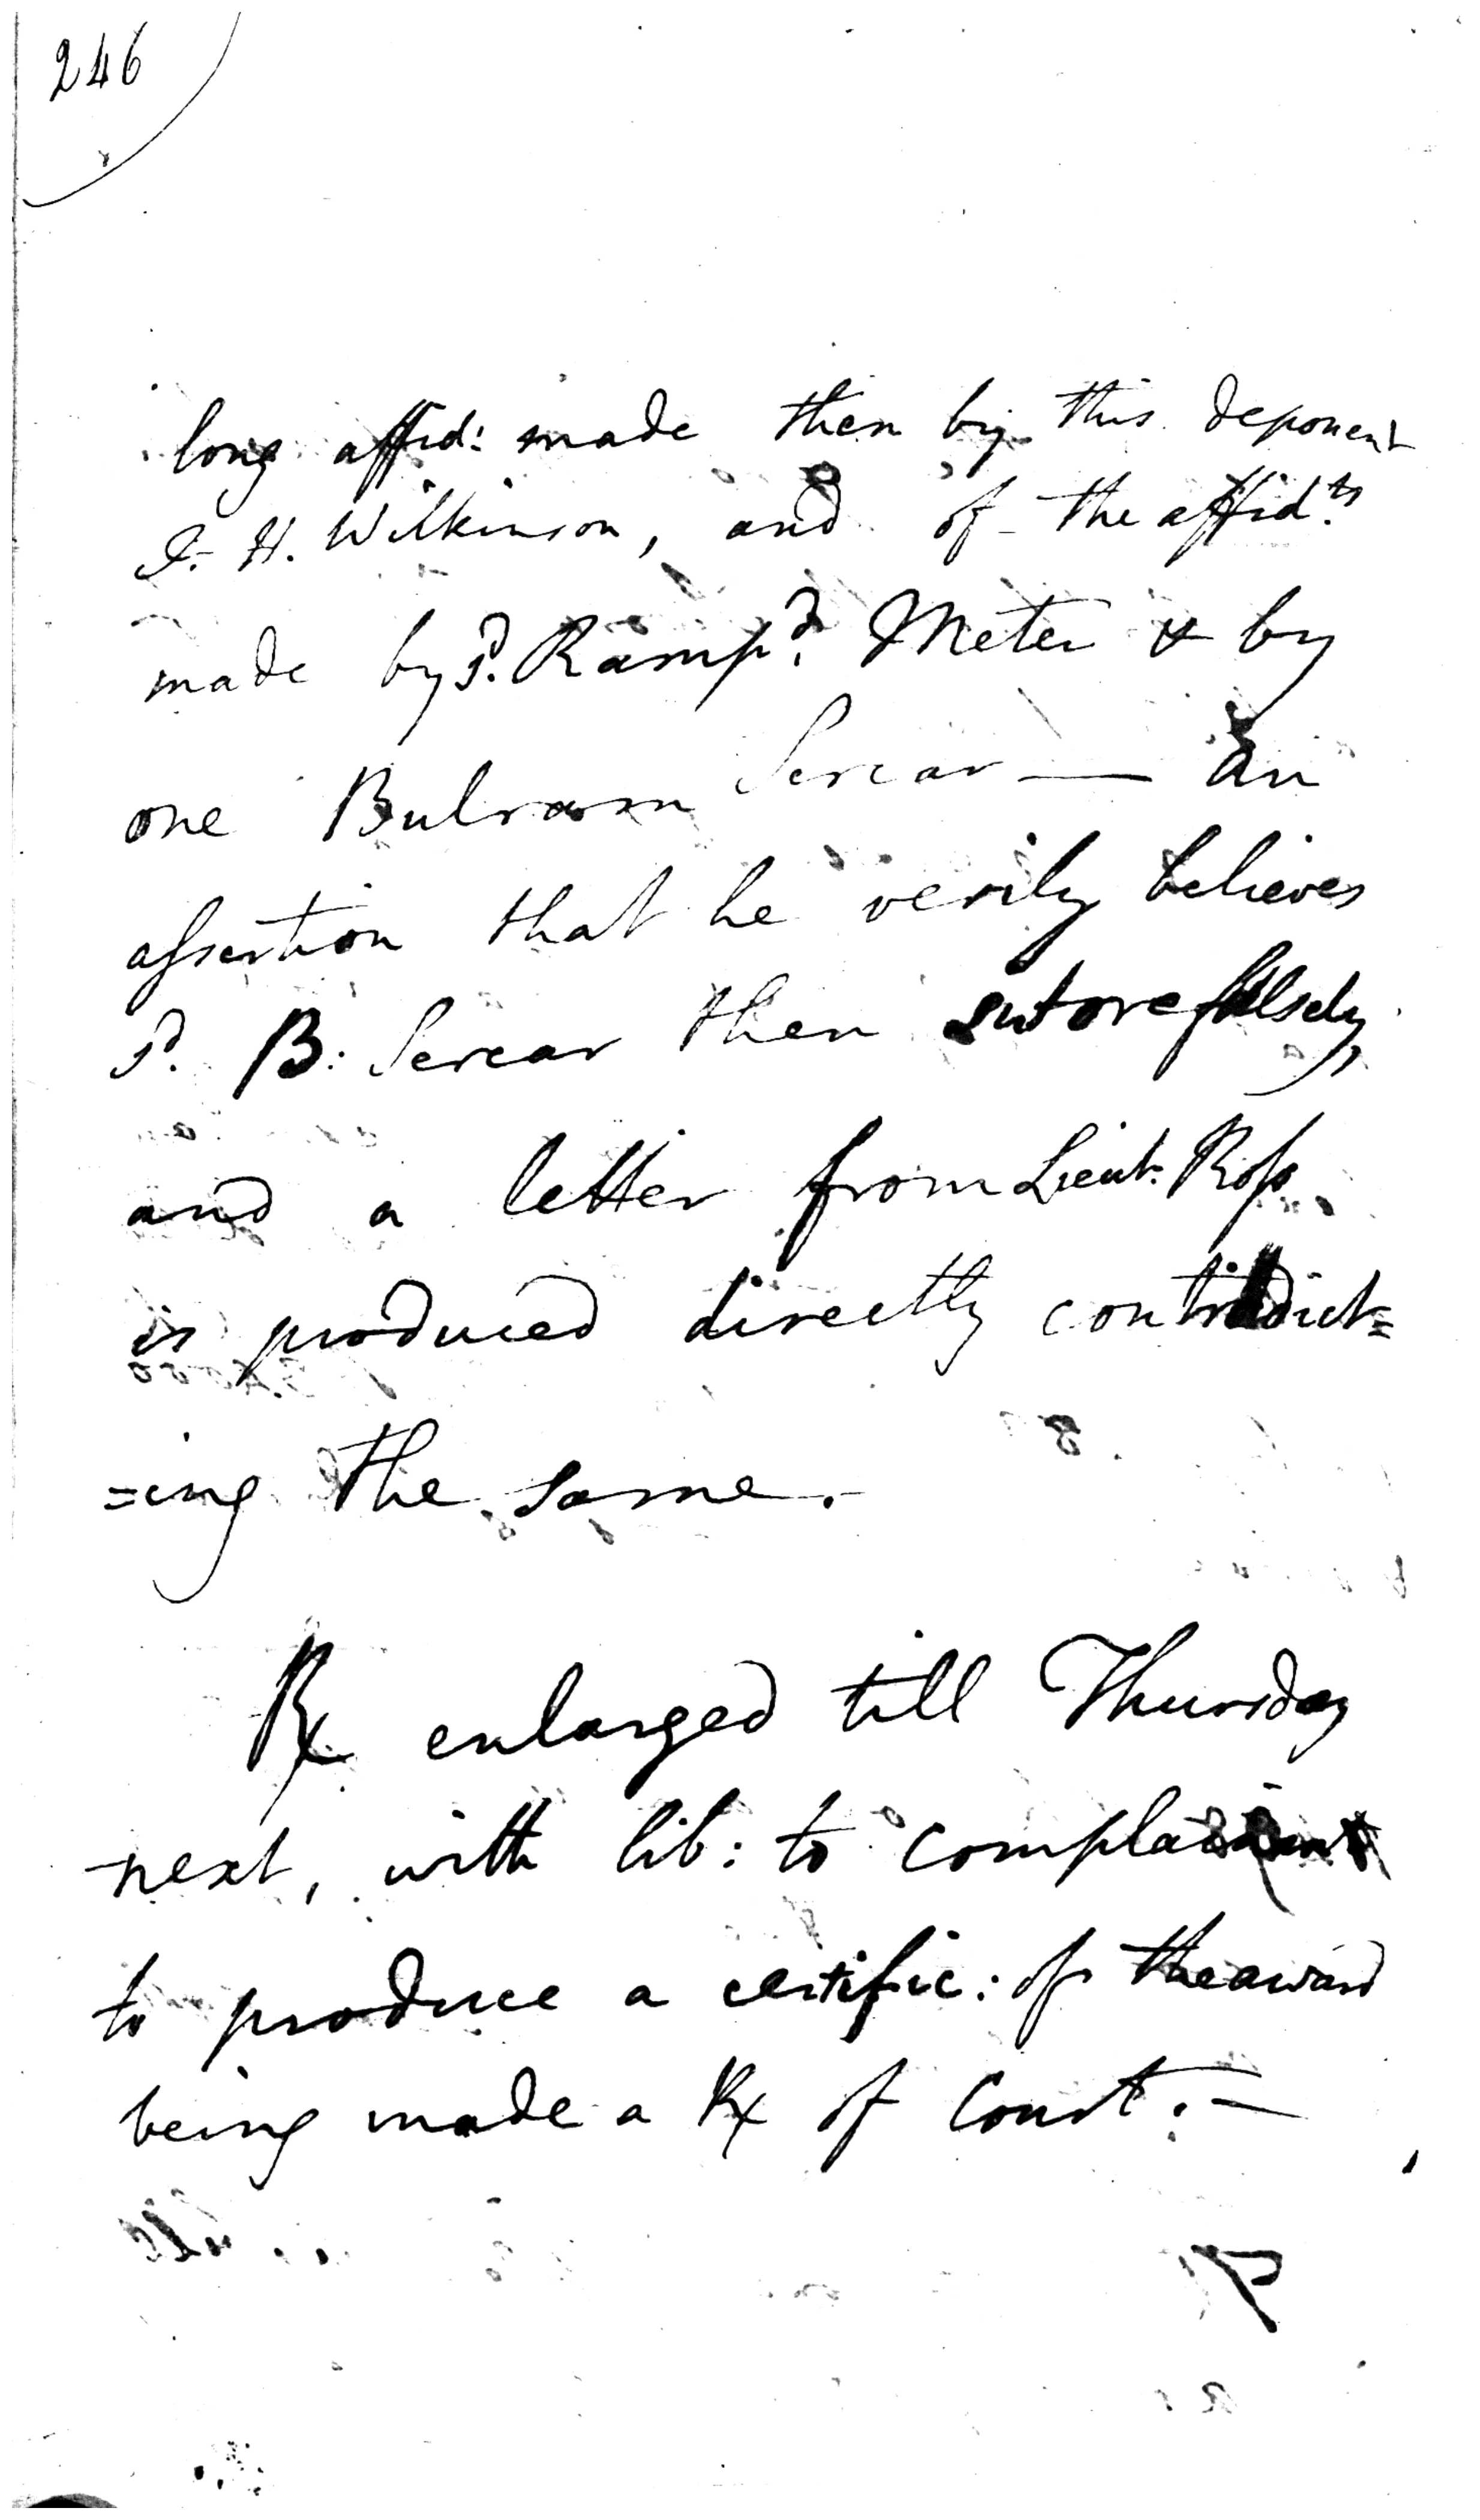 246
long affid: made then by this deponent
J. H. Wilkinson, and of the affid.ts
made by Sd. Ramp.d Meter & by
one Bulram Sercar — An
assertion that he verily believes
Sd. B: Sercar then swore falsely,
and a letter from Lieut. Ross
is produced directly contradict=
=ing the same.
Rx enlarged till Thursday
next, with lib: to complainant
to produce a certific: of the award
being made a Rx of Court. —